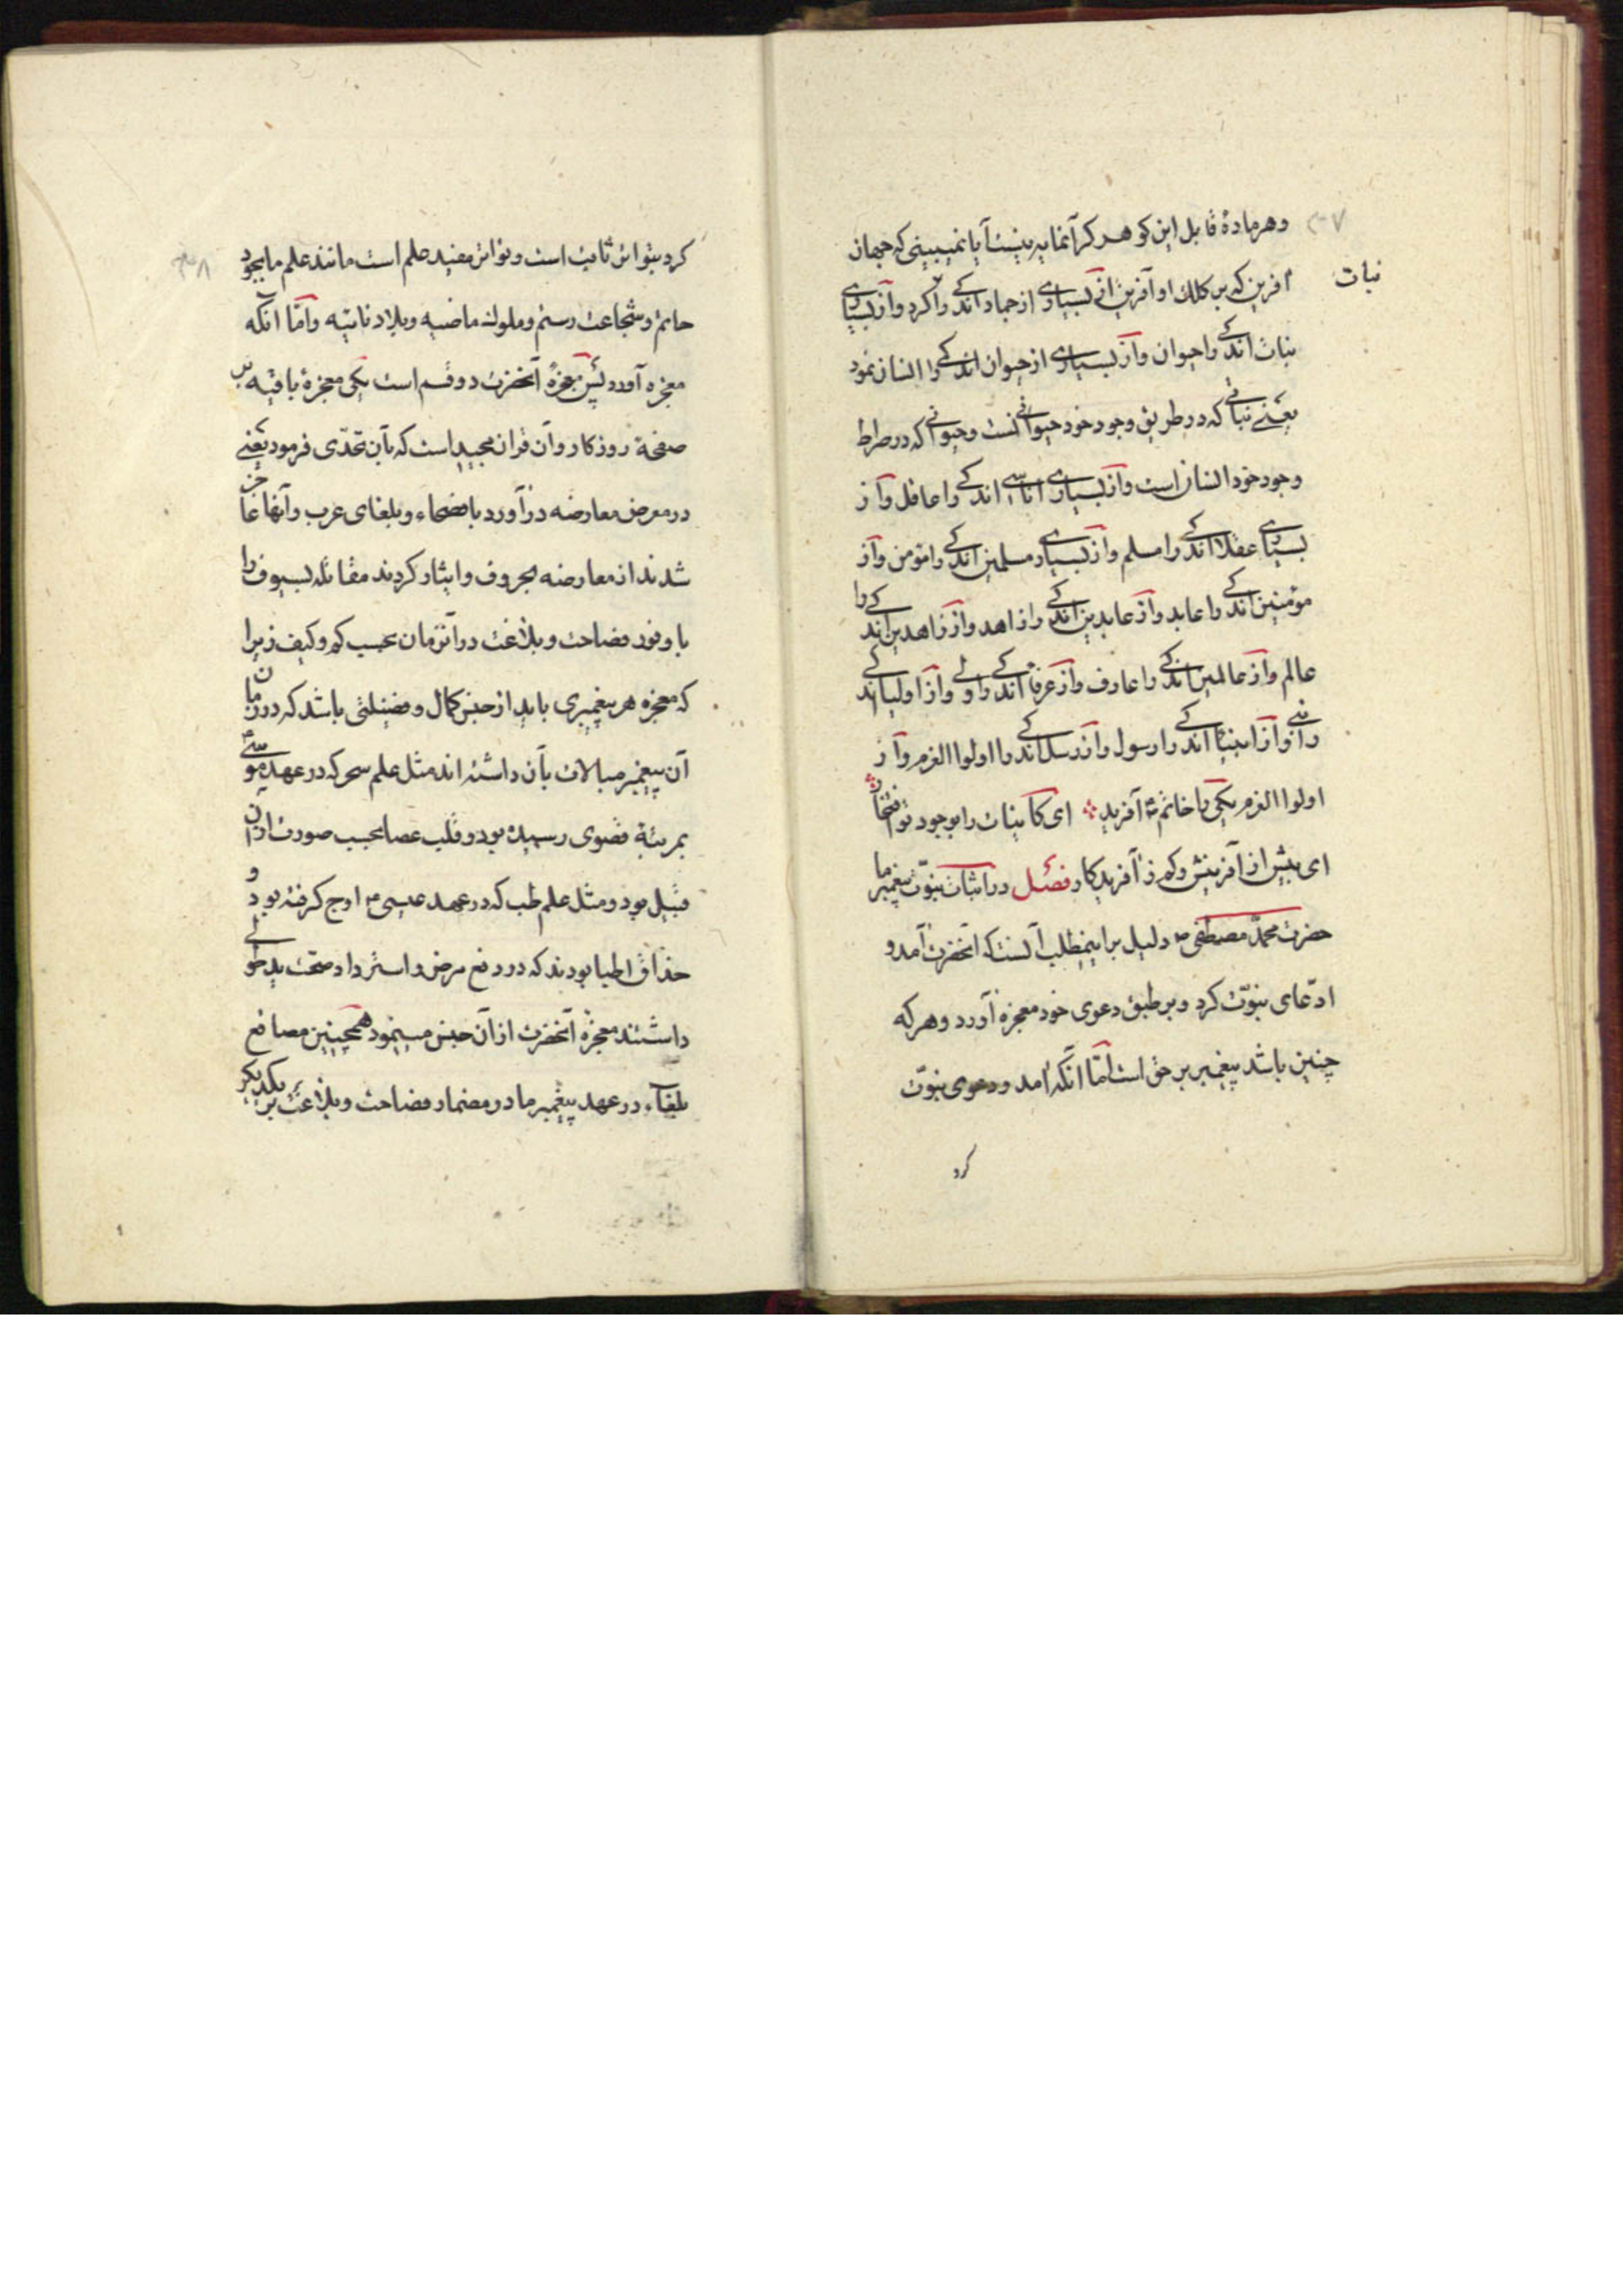 ۳۷
و هر مادهٔ قابل این کوهر کرانمایه نیست آیا نمیبینی که جهان
نبات
افرین که بر کلک او آفرین از بسیاری از جماد اندکی را کرد و از بسیاری
نبات اندکی را حیوان و از بسیاری از حیوان اندکی را انسان نمود
یعنی نباتی که در طریق وجود خود حیوانست و حیوانی که در صراط
وجود خود انسان است و از بسیاری اناسی اندکی را عاقل و از
بسیاری عقلا اندکی را مسلم و از بسیار مسلمین اندکی را مؤمن و از
مؤمنین اندکی را عابد و از عابدین اندکی را زاهد و از زاهدین اندکی را
عالم و از عالمین اندکی را عارف و از عرفا اندکی را ولی و از اولیا اندکی
را نبی و از انبیا اندکی را رسول و از رسل اندکی را اولوا العزم و از
اولوا العزم یکی را خاتم آفرید ای کاینات را بوجود تو افتخار
ای بیش از آفرینش و کم ز آفریدکار فصل در اثبات نبوّت پیغمبر ما
حضرت محمّد مصطفی ص دلیل بر اینمطلب آنست که آنحضرت آمد و
ادّعای نبوّت کرد و بر طبق دعوی خود معجزه آورد و هر که
چنین باشد پیغمبر بر حق است امّا آنکه امد و دعوی نبوّت
کرد
۳۸
کرد بتواتر ثابت است و تواتر مفید علم است مانند علم ما بجود
حاتم و شجاعت رستم و ملوک ماضیه و بلاد نائیه و امّا آنکه
معجزه آورد پس معجزهٔ آنحضرت دو قسم است یکی معجزهٔ باقیه بر
صفحة روزکار و آن قران مجید است که بآن تحدّی فرمود یعنی
در معرض معارضه در آورد با فصحاء و بلغای عرب و آنها عاجز
شدند از معارضه بحروف و ایثار کردند مقاتله بسیوف را
با وفور فصاحت و بلاغت در آنزمان بحسب کم و کیف زیرا
که معجزه هر پیغمبری باید از جنس کمال و فضیلتی باشد که در زمان
آن پیغمبر مبالات بآن داشته اند مثل علم سحر که در عهد موسی
بمرتبة قصوی رسیده بود و قلب عصا بحسب صورت از آن
قبیل بود و مثل علم طب که در عهد عیسی ع اوج کرفته بود و
حذاق اطبا بودند که در رفع مرض و استرداد صحّت ید طولی
داشتند معجزه آنحضرت از آن جنس مینمود همچنین مصاقع
بلغاء در عهد پیغمبر ما در مضمار فصاحت و بلاغت بر یکدیکر